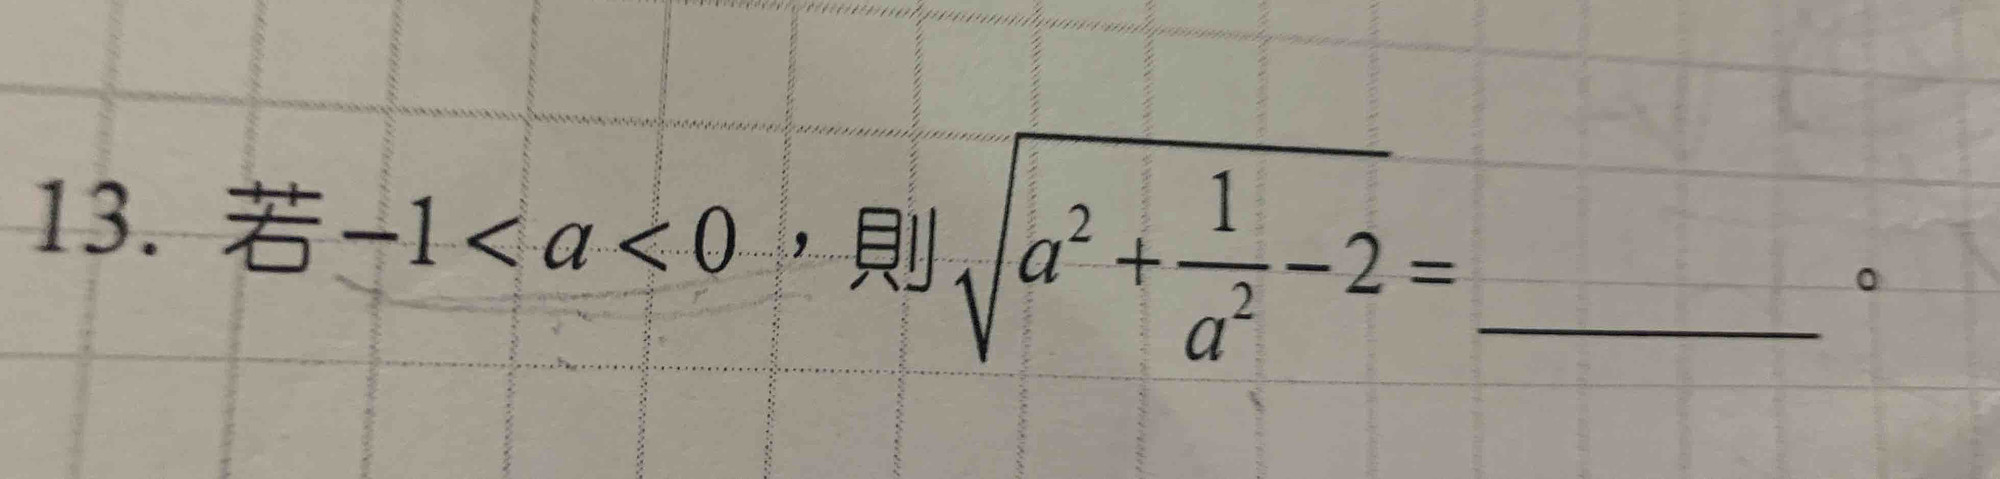 13. 若 −1 < a < 0，則 √(a² + 1/a² − 2) = ______。